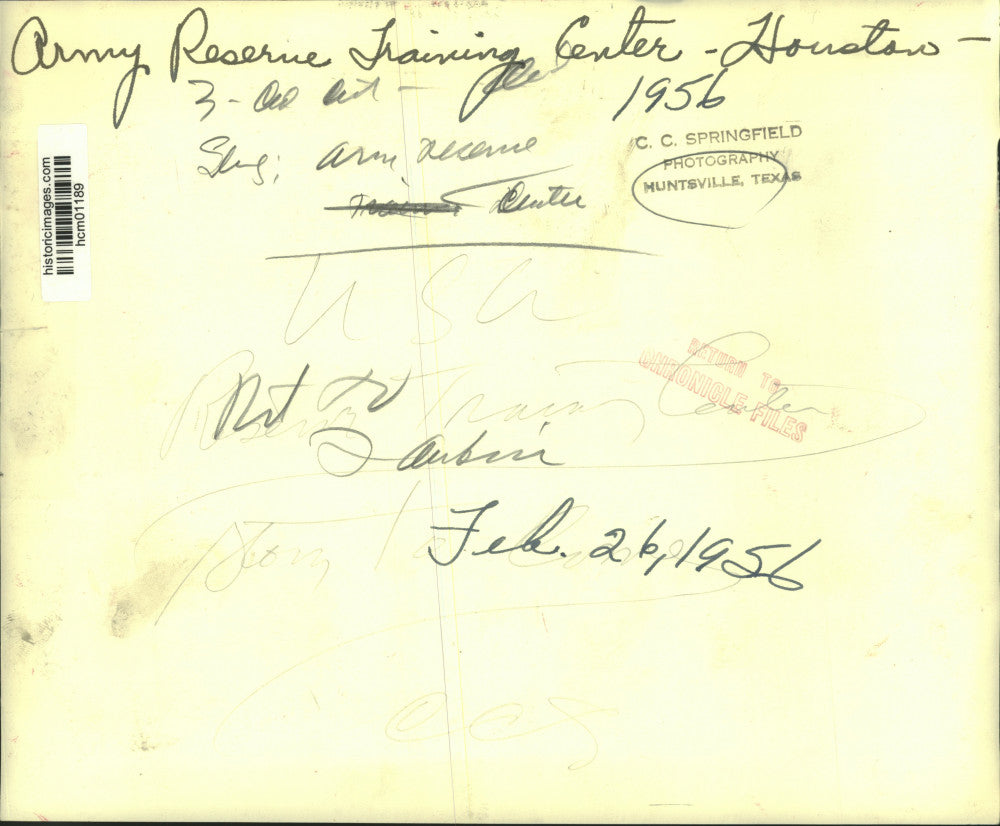 Army Reserve Training Center - Houston -
1956
3 - col cut -
Slug; Army Reserve
Training Center
C. C. SPRINGFIELD
PHOTOGRAPHY
HUNTSVILLE, TEXAS
historicimages.com
hcm01189
USA
RETURN TO
CHRONICLE FILES
Reserve Training Center
Ret to
Feb. 26, 1956
Story to
CCS